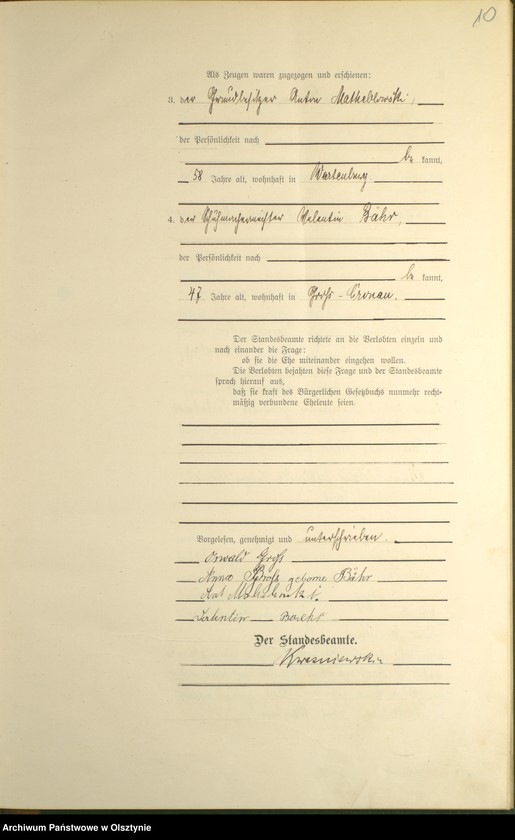 10
Als Zeugen waren zugezogen und erschienen:
3. der Grundbesitzer Anton
der Persönlichkeit nach
be kannt,
58 Jahre alt, wohnhaft in Wartenburg.
4. der Schuhmachermeister Valentin Bähr,
der Persönlichkeit nach
be kannt,
47 Jahre alt, wohnhaft in Groß-Cronau.
Der Standesbeamte richtete an die Verlobten einzeln und
nach einander die Frage:
ob sie die Ehe miteinander eingehen wollen.
Die Verlobten bejahten diese Frage und der Standesbeamte
sprach hierauf aus,
daß sie kraft des Bürgerlichen Gesetzbuchs nunmehr recht-
mäßig verbundene Eheleute seien.
Vorgelesen, genehmigt und unterschrieben.
Oswald Groß
Anna Groß geborne Bähr
Valentin Baehr
Der Standesbeamte.
Archiwum Państwowe w Olsztynie